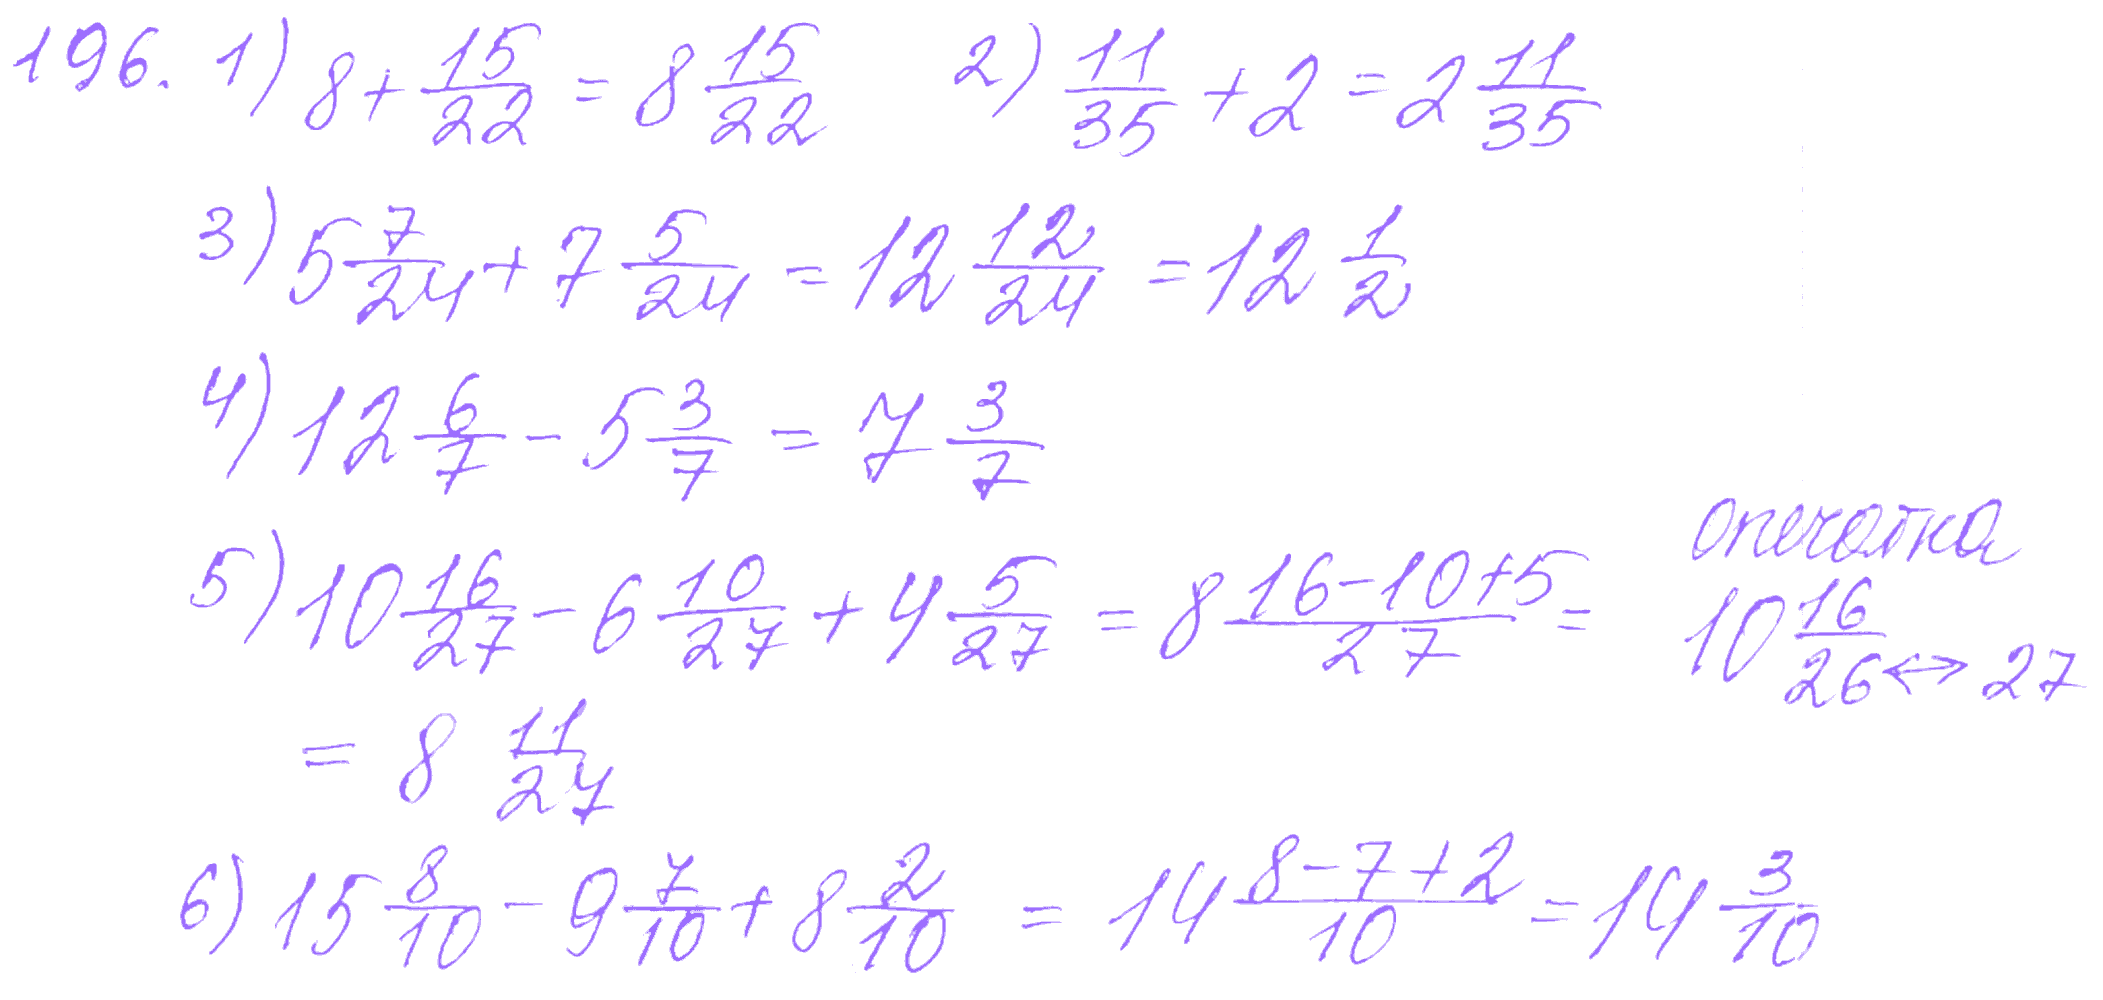 196. 1) 8 + 15/22 = 8 15/22 2) 11/35 + 2 = 2 11/35
3) 5 7/24 + 7 5/24 = 12 12/24 = 12 1/2
4) 12 6/7 - 5 3/7 = 7 3/7
опечатка
5) 10 16/27 - 6 10/27 + 4 5/27 = 8 (16-10+5)/27 = 10 16/26 <-> 27
= 8 11/27
6) 15 8/10 - 9 7/10 + 8 2/10 = 14 (8-7+2)/10 = 14 3/10